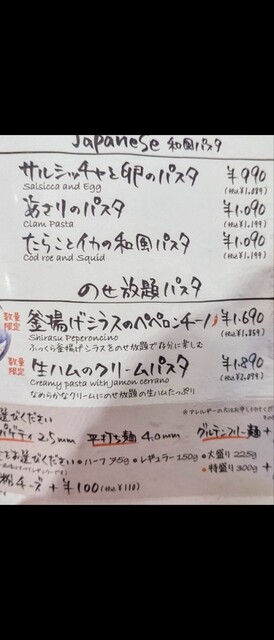 Japanese 和風パスタ
サルシッチャと卵のパスタ ¥990
Salsicca and Egg (税込¥1,089)
あさりのパスタ ¥1,090
Clam Pasta (税込¥1,199)
たらことイカの和風パスタ ¥1,090
Cod roe and Squid (税込¥1,199)
のせ放題パスタ
数量限定 釜揚げシラスのペペロンチーノ ¥1,690
Shirasu Peperoncino (税込¥1,859)
ふっくら釜揚げシラスをのせ放題で存分に楽しむ
数量限定 生ハムのクリームパスタ ¥1,890
Creamy pasta with Jamon serrano (税込¥2,079)
なめらかなクリームにのせ放題の生ハムたっぷり
選びください
パゲティ 2.5mm 平打ち麺 4.0mm グルテンフリー麺 +
をお選びください ●ハーフ 75g ●レギュラー 150g ●大盛り 225g
●特盛り 300g +
粉チーズ +¥100 (税込¥110)